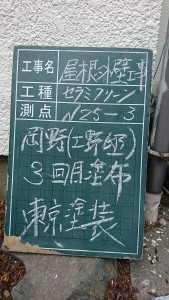 工事名 屋根外壁工事
工種 セラミクリーン
測点 N25-3
岡野(工野邸)
3回目塗布
東京塗装